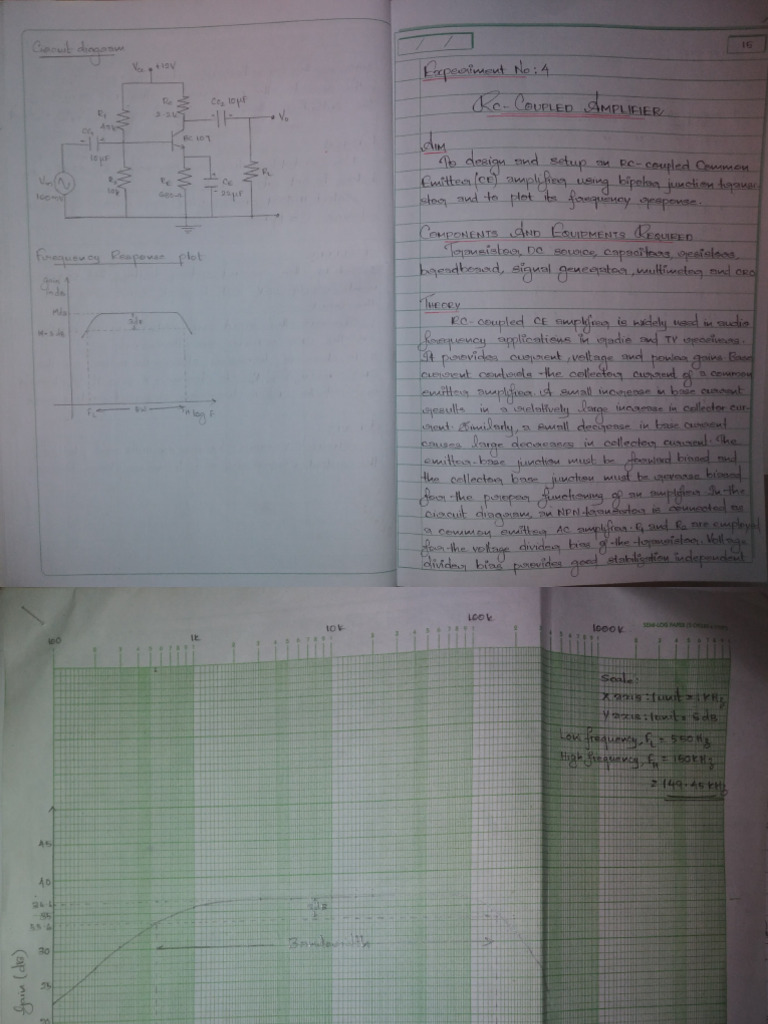 Circuit diagram
Vcc +12V
Rc
2.2k
CC2 10µF
Vo
R1
47k
CC1
10µF
BC107
Vin
R2
10k
RE
680Ω
CE
22µF
RL
Frequency Response plot
gain
in dB
3dB
FL
BW
FH
log f
16
Experiment No: 4
RC-COUPLED AMPLIFIER
AIM
To design and setup an RC-coupled Common
Emitter (CE) amplifier using bipolar junction transi-
stor and to plot its frequency response.
COMPONENTS AND EQUIPMENTS REQUIRED
Transistor, DC source, capacitors, resistors,
breadboard, signal generator, multimeter and CRO
THEORY
RC-coupled CE amplifier is widely used in audio
frequency applications in radio and TV receivers.
It provides current, voltage and power gains. Base
current controls the collector current of a common
emitter amplifier. A small increase in base current
results in a relatively large increase in collector cur-
rent. Similarly, a small decrease in base current
causes large decreases in collector current. The
emitter-base junction must be forward biased and
the collector base junction must be reverse biased
for the proper functioning of an amplifier. In the
circuit diagram, an NPN transistor is connected as
a common emitter AC amplifier. R1 and R2 are employed
for the voltage divider bias of the transistor. Voltage
divider bias provides good stabilization independent
100
1k
10k
100k
1000k
Scale:
X axis: 1unit = 1 kHz
Y axis: 1unit = 5 dB
Low frequency, FL = 550Hz
High frequency, FH = 150KHz
= 149.45 KHz
45
40
35
3dB
30
Bandwidth
25
Gain (dB)